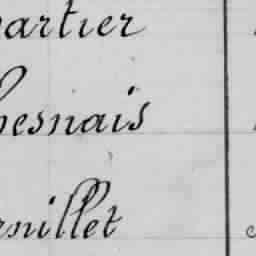 artier
hesnais
rnillet